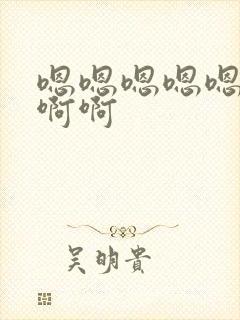 嗯嗯嗯嗯嗯
啊啊
吴明贵